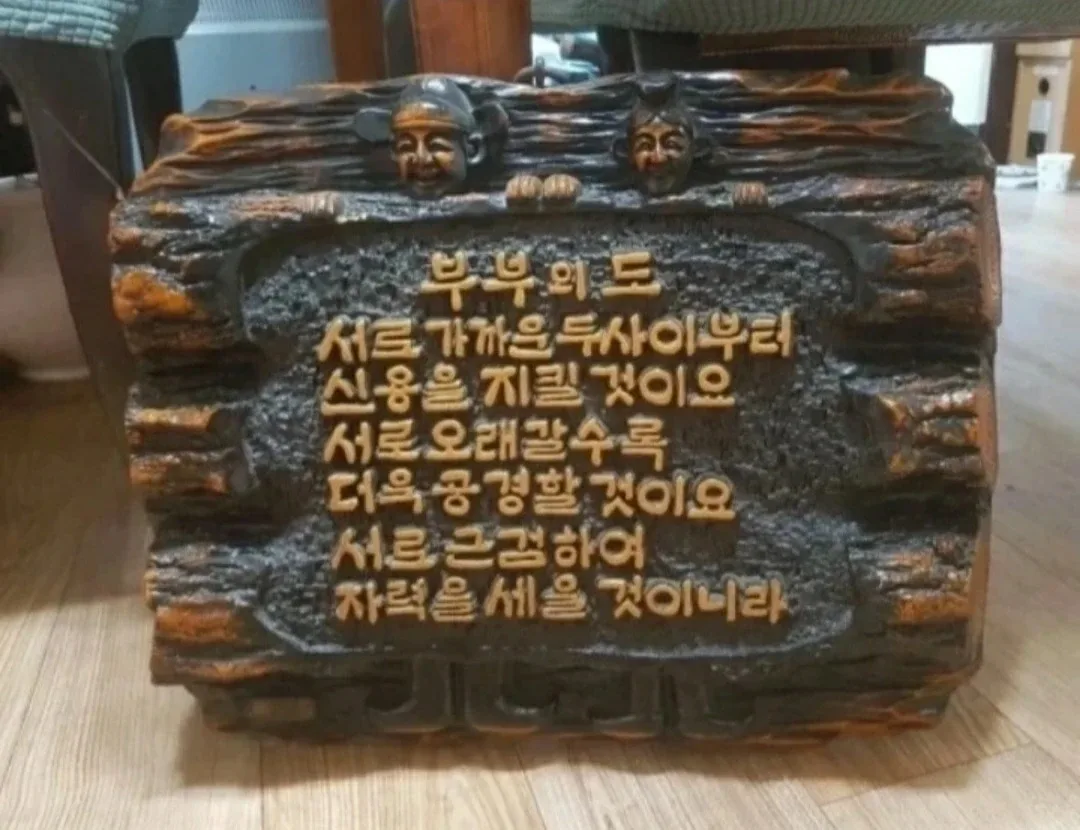 부부의 도
서로 가까운 두사이부터
신용을 지킬 것이요
서로 오래갈수록
더욱 공경할 것이요
서로 근검하여
자력을 세울 것이니라